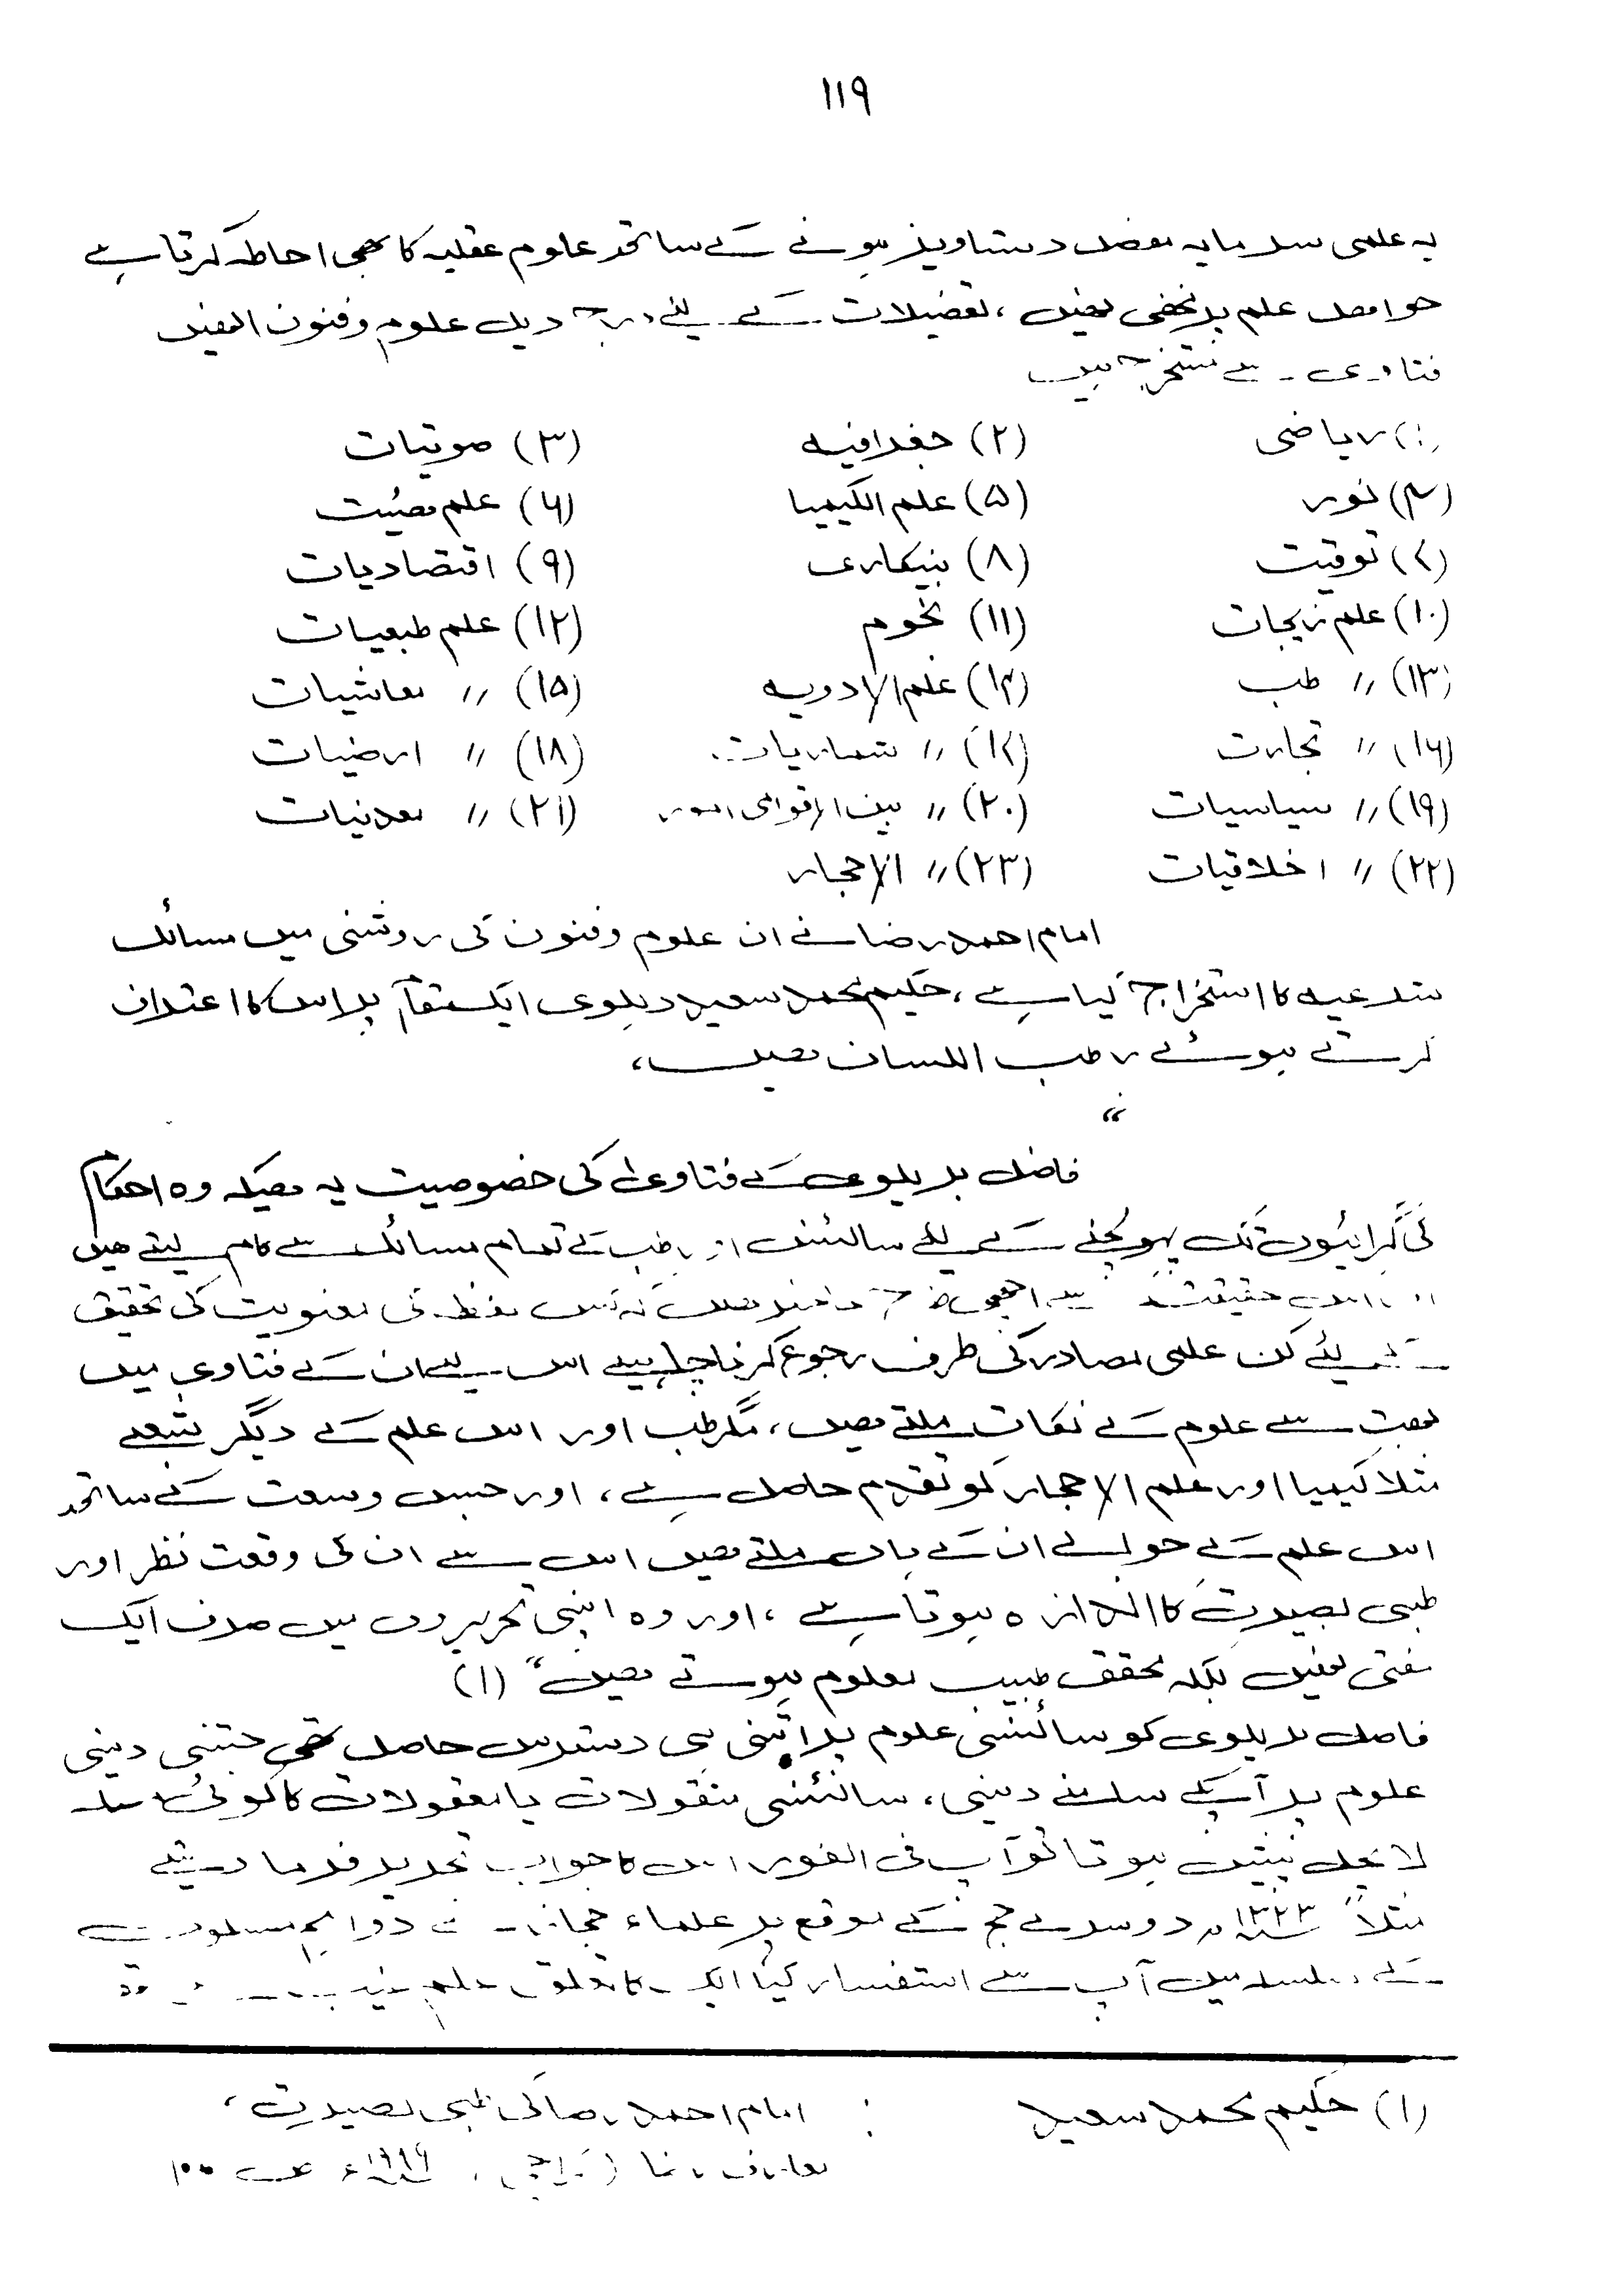 ۱۱۹
یہ علمی سرمایہ مفصل دستاویز ہونے کے ساتھ علوم عقلیہ کا بھی احاطہ کرتا ہے
جو اھل علم پر مخفی نھیں، تفصیلات کے لیئے درج ذیل علوم و فنون انھیں
فتاوی سے مستخرج ہیں
(۱) ریاضی (۲) جغرافیہ (۳) صوتیات
(۴) نور (۵) علم الکیمیا (۶) علم ھیئت
(۷) توقیت (۸) بینکاری (۹) اقتصادیات
(۱۰) علم زیجات (۱۱) نجوم (۱۲) علم طبعیات
(۱۳) ‎〃 طب (۱۴) علم الادویہ (۱۵) 〃 معاشیات
(۱۶) 〃 تجارت (۱۷) 〃 شماریات (۱۸) 〃 ارضیات
(۱۹) 〃 سیاسیات (۲۰) 〃 بین الاقوامی امور (۲۱) 〃 معدنیات
(۲۲) 〃 اخلاقیات (۲۳) 〃 الاحجار
امام احمد رضا نے ان علوم و فنون کی روشنی میں مسائل
شرعیہ کا استخراج کیا ہے، حکیم محمد سعید دہلوی ایک مقام پر اس کا اعتراف
کرتے ہوئے رطب اللسان ھیں،
“
فاضل بریلوی کے فتاویٰ کی خصوصیت یہ ھیکہ وہ احکام
کی گہرائیوں تک پہونچنے کے لئے سائنس اور طب کے تمام مسائل سے کام لیتے ھیں
اور اس حقیقت سے اچھی کہ کس لفظ کی معنویت کی تحقیق
کے لیئے کن علمی مصادر کی طرف رجوع کرنا چاہیے اس لیے ان کے فتاوی میں
بھت سے علوم کے نکات ملتے ھیں، مگر طب اور اس علم کے دیگر شعبے
مثلا کیمیا اور علم الاحجار کو تقدم حاصل ہے، اور جس وسعت کے ساتھ
اس علم کے حوالے ان کے ہاں ملتے ھیں اس سے ان کی وقعت نظر اور
طبی بصیرت کا اندازہ ہوتا ہے، اور وہ اپنی تحریروں میں صرف ایک
مفتی نھیں بلکہ محقق طبیب معلوم ہوتے ھیں“ (۱)
فاضل بریلوی کو سائنسی علوم پر اتنی ہی دسترس حاصل تھی جتنی دینی
علوم پر آپکے سامنے دینی، سائنسی منقولات یا معقولات کا کوئی مسئلہ
لا ینحل ہوتا تو آپ فی الفور اس کا جواب تحریر فرما دیتے
مثلاً ۱۳۲۳ھ دوسرے حج کے موقع پر علماء حجاز نے دو اہم مسئلوں
کے سلسلہ میں آپ سے استفسار کیا ایک کا تعلق علم غیب
(۱) حکیم محمد سعید : امام احمد رضا کی طبی بصیرت،
معارف رضا (کراچی)، ۱۹۸۹ء ص ۱۰۰